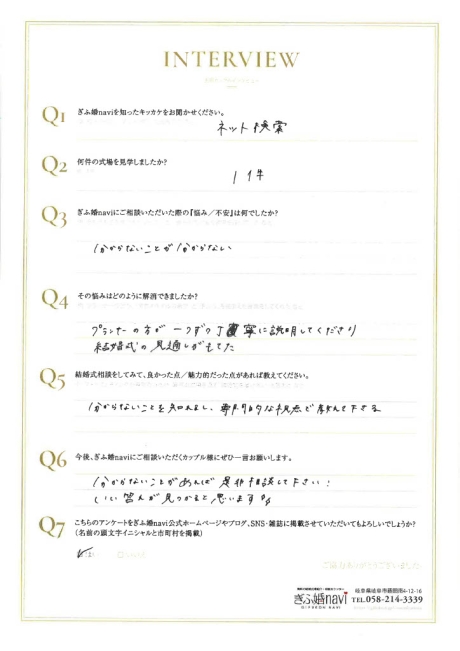 INTERVIEW
Q1 ぎふ婚naviを知ったキッカケをお聞かせください。
ネット検索
Q2 何件の式場を見学しましたか?
1件
Q3 ぎふ婚naviにご相談いただいた際の『悩み／不安』は何でしたか?
分からないことが分からない
Q4 その悩みはどのように解消できましたか?
プランナーの方が一つずつ丁寧に説明してくださり
結婚式の見通しがもてた
Q5 結婚式相談をしてみて、良かった点／魅力的だった点があれば教えてください。
分からないことを知れるし、専門的な視点で教えて下さる
Q6 今後、ぎふ婚naviにご相談いただくカップル様にぜひ一言お願いします。
分からないことがあれば是非相談して下さい!
いい答えが見つかると思います
Q7 こちらのアンケートをぎふ婚navi公式ホームページやブログ、SNS・雑誌に掲載させていただいてもよろしいでしょうか?
(名前の頭文字イニシャルと市町村を掲載)
はい いいえ
ご協力ありがとうございました
ぎふ婚navi
GIFUKON NAVI
TEL.058-214-3339